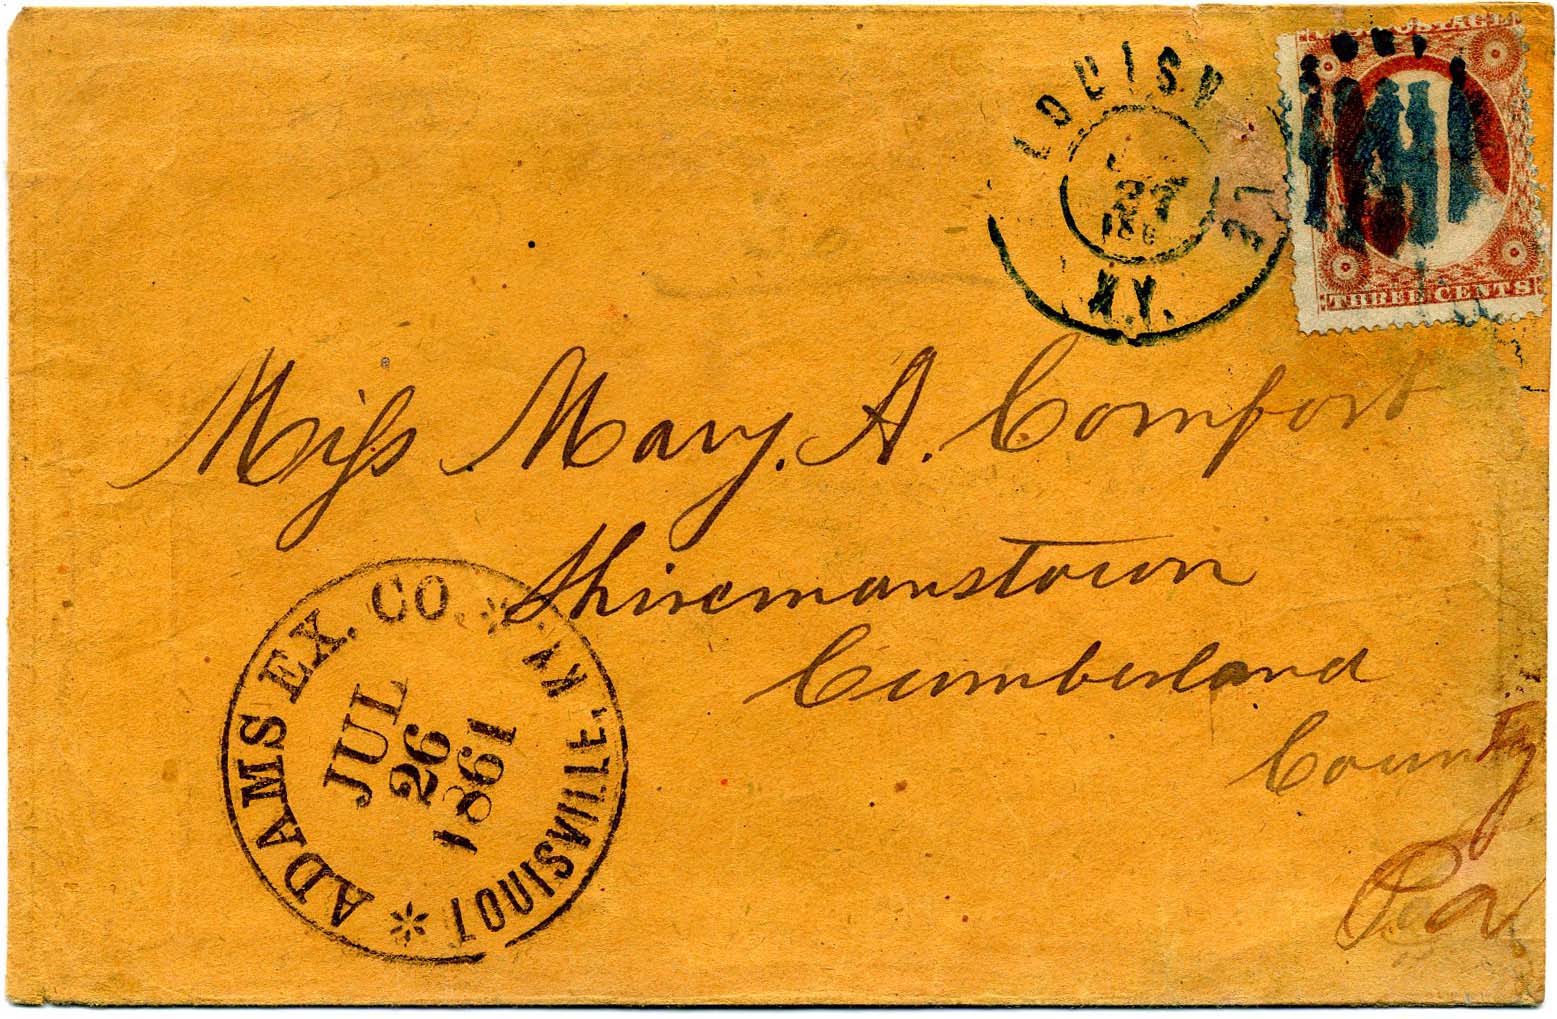 LOUISV
27
186
KY.
POSTAGE
THREE CENTS
Miss Mary. A. Comfort
Shiremanstown
Cumberland
County
Pa
ADAMS EX. CO. * LOUISVILLE, KY. *
JUL
26
1861